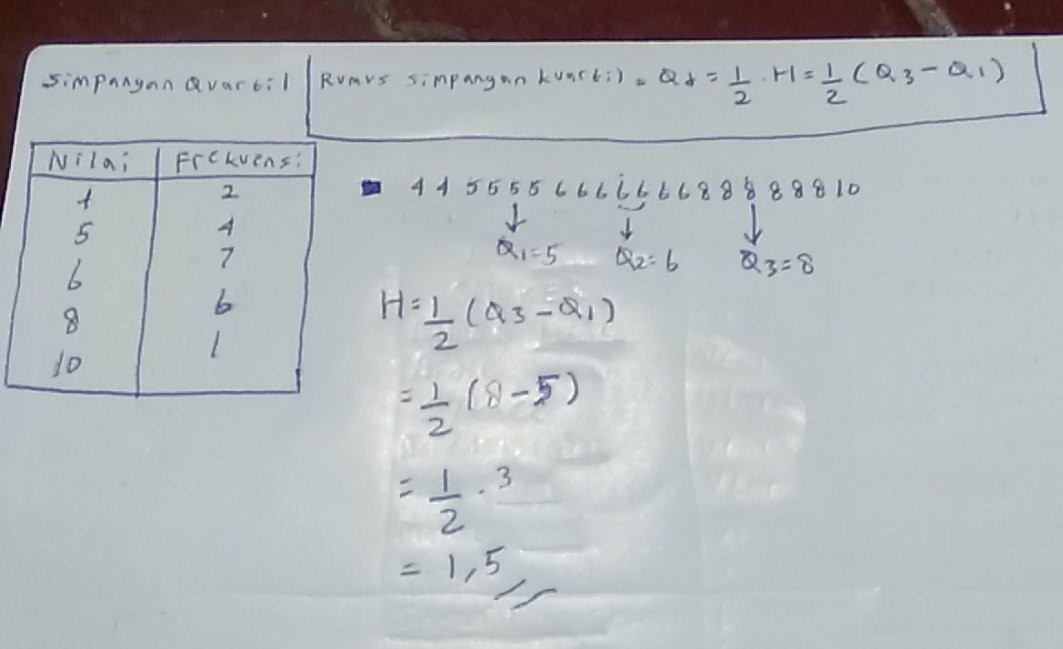 Simpangan Quartil
Rumus simpangan kuartil = Qd = 1/2 . H = 1/2 (Q3 - Q1)
Nilai Frekuensi
4 2
5 4
6 7
8 6
10 1
4 4 5 5 5 5 6 6 6 6 6 6 6 8 8 8 8 8 8 10
Q1=5 Q2=6 Q3=8
H = 1/2 (Q3 - Q1)
= 1/2 (8 - 5)
= 1/2 . 3
= 1,5